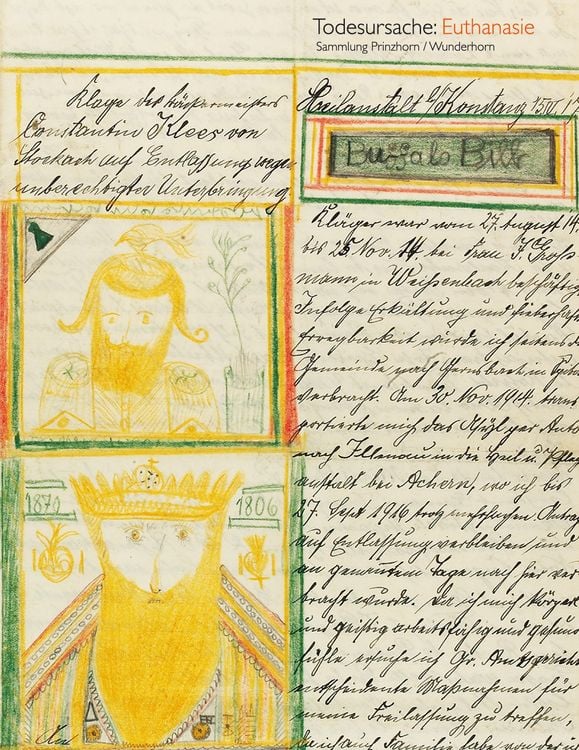 Todesursache: Euthanasie
Sammlung Prinzhorn / Wunderhorn
Klage des Bäckermeisters
Constantin Klees von
Stockach auf Entlassung wegen
unberechtigter Unterbringung
Heilanstalt b/Konstanz
Buffalo Bill
Kläger war vom 27. August 14.
bis 25 Nov. 14 bei Frau J. Groß
mann in Weißenbach beschäftig
Infolge Erkältung und fieberhaf
Erregbarkeit wurde ich seitens d
Gemeinde nach Gernsbach in
verbracht. Am 30. Nov. 1914. trans
portierte mich das Asyl per Auto
nach Illenau in die Heil u. Pfleg
anstalt bei Achern, wo ich bis
27. Sept 1916 trotz mehrfachen Antra
auf Entlassung verbleiben, und
an genanntem Tage nach hier ver
bracht wurde. Da ich mich körper
und geistig arbeitsfähig und gesun
fühle ersuche ich Gr. Amtsgericht
entscheidente Maßnahmen für
meine Freilassung zu treffen,
da ich auch Familie habe von der
1870
1806